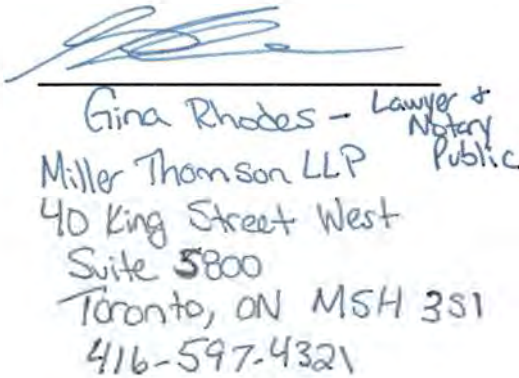 Gina Rhodes - Lawyer & Notary Public
Miller Thomson LLP
40 King Street West
Suite 5800
Toronto, ON M5H 3S1
416-597-4321